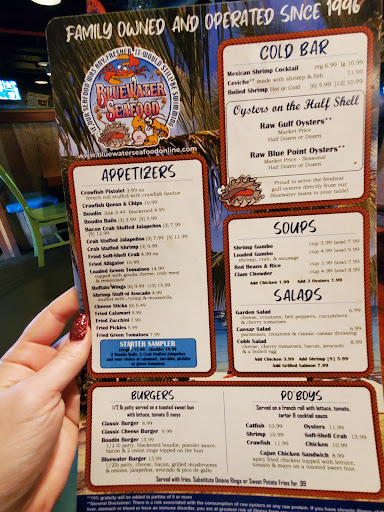 FAMILY OWNED AND OPERATED SINCE 1996
IF OUR SEAFOOD WAS ANY FRESHER, IT WOULD STILL BE SWIMMING
BLUEWATER
SEAFOOD
www.bluewaterseafoodonline.com
APPETIZERS
Crawfish Pistolet 3.99 ea
french roll stuffed with crawfish fondue
Crawfish Queso & Chips 10.99
Boudin link 3.49 blackened 4.99
Boudin Balls [3] 3.99 [5] 5.99
Bacon Crab Stuffed Jalapeños [3] 7.99
[5] 12.99
Crab Stuffed Jalapeños [3] 7.99 [5] 11.99
Crab Stuffed Shrimp [3] 9.99
Fried Soft-Shell Crab 8.99 ea
Fried Alligator 10.99
Loaded Green Tomatoes 14.99
topped with gouda cheese, crab meat
& remoulade
Buffalo Wings [6] 9.99 [10] 13.99
Shrimp Stuffed Avocado 8.99
stuffed with shrimp & mozzarella
Cheese Sticks [6] 5.49
Fried Calamari 9.99
Fried Zucchini 7.99
Fried Pickles 5.99
Fried Green Tomatoes 7.99
STARTER SAMPLER
2 Boudin Balls, 2 Crab Stuffed Jalapeños
and your choice of calamari, zucchini, pickles
or green tomatoes.
COLD BAR
Mexican Shrimp Cocktail reg 6.99 lg 10.99
Ceviche** made with shrimp & fish 11.99
Boiled Shrimp Hot or Cold [6] 5.99 [12] 10.99
Oysters on the Half Shell
Raw Gulf Oysters**
Market Price
Half Dozen or Dozen
Raw Blue Point Oysters**
Market Price - Seasonal
Half Dozen or Dozen
Proud to serve the freshest
gulf oysters directly from our
Bluewater boats to your table!
SOUPS
Shrimp Gumbo cup 3.99 bowl 7.99
Loaded Gumbo cup 4.99 bowl 9.99
shrimp, crab, & sausage
Red Beans & Rice cup 3.49 bowl 6.99
Clam Chowder cup 4.49 bowl 8.99
Add Chicken 1.99 Add 3 Oysters 1.99
SALADS
Garden Salad 6.99
cheese, croutons, bell peppers, cucumbers
& cherry tomatoes
Caesar Salad 6.99
parmesan, croutons & classic caesar dressing
Cobb Salad 8.99
cheese, cherry tomatoes, bacon, avocado,
& a boiled egg
Add Chicken 3.99 Add Shrimp [8] 5.99
Add Grilled Salmon 7.99
BURGERS
1/2 lb patty served on a toasted sweet bun
with lettuce, tomato & mayo
Classic Burger 8.99
Classic Cheese Burger 9.99
Boudin Burger 13.99
1/2lb patty, blackened boudin, pistolet sauce,
bacon & 2 onion rings topped on the bun
Bluewater Burger 13.99
1/2lb patty, cheese, bacon, grilled mushrooms
& onions, jalapeño, avocado & pico de gallo
PO'BOYS
Served on a french roll with lettuce, tomato,
tartar & cocktail sauce
Catfish 10.99 Oysters 11.99
Shrimp 10.99 Soft-Shell Crab 13.99
Crawfish 11.99 Chicken 10.99
Cajun Chicken Sandwich 8.99
spicy fried chicken topped with lettuce,
tomato & mayo on a toasted sweet bun
Served with fries. Substitute Onion Rings or Sweet Potato Fries for .99
*18% gratuity will be added to parties of 9 or more